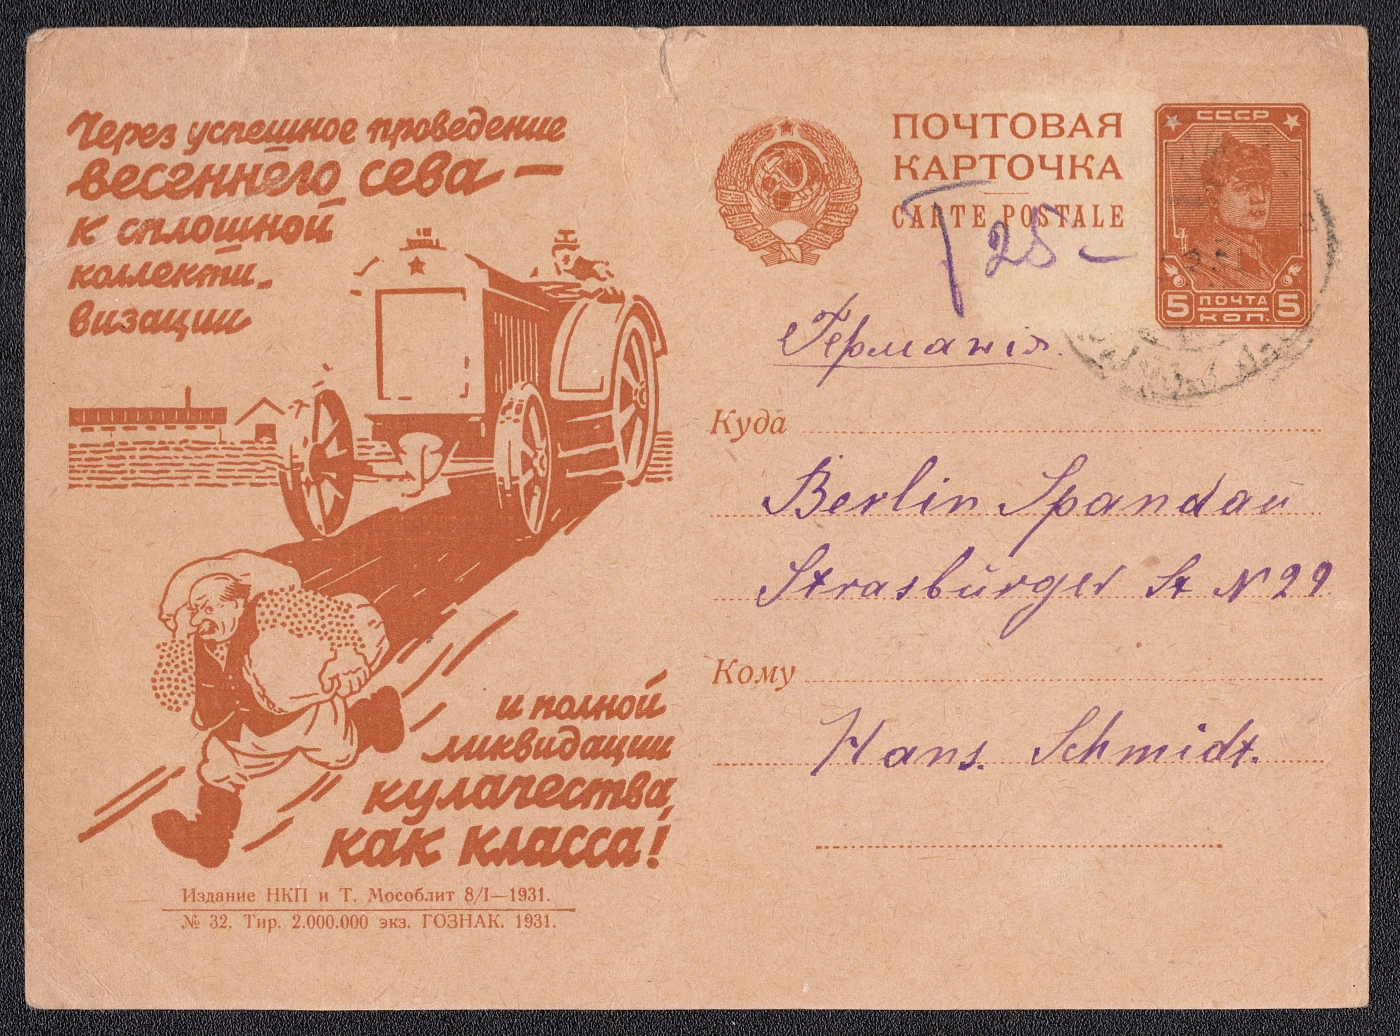 Через успешное проведение
весеннего сева —
к сплошной
коллекти-
визации
и полной
ликвидации
кулачества,
как класса!
Издание НКП и Т. Мособлит 8/I—1931.
№ 32. Тир. 2.000.000 экз. ГОЗНАК. 1931.
ПОЧТОВАЯ
КАРТОЧКА
CARTE POSTALE
СССР
5 ПОЧТА 5
КОП.
T 25
Германія.
Куда
Berlin Spandau
Strasbürger St N 29
Кому
Hans. Schmidt.